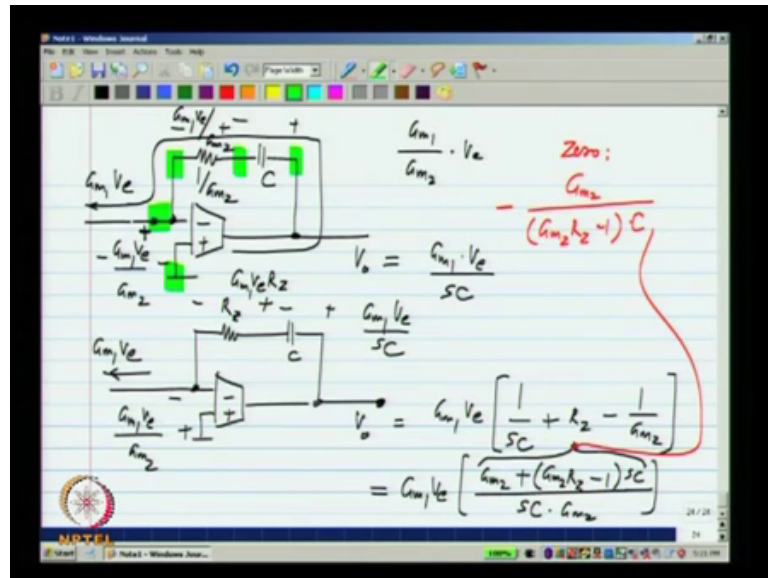 Note1 - Windows Journal
File Edit View Insert Actions Tools Help
Page Width
- Gm1Ve/Gm2 + - +
1/Gm2 C
Gm1 Ve
Gm1/Gm2 · Ve
Zero:
- Gm2/((Gm2Rz-1)·C)
+ -
- +
- Gm1Ve/Gm2 -
Vo = Gm1·Ve/sC
Gm1VeRz
- Rz + - + Gm1Ve/sC
C
Gm1Ve
-
- +
Gm1Ve/Gm2 +
Vo = Gm1Ve [1/sC + Rz - 1/Gm2]
= Gm1Ve [(Gm2+(Gm2Rz-1)sC)/(sC·Gm2)]
24/24
24
NPTEL
Start
Note1 - Windows Jour...
100%
5:21 PM